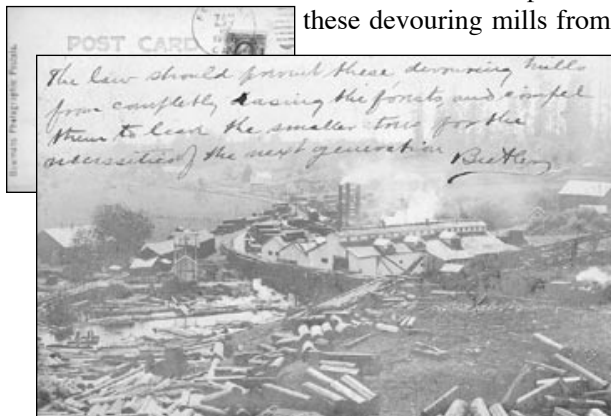 these devouring mills from
POST CARD
Business Photographic Postals.
The law should prevent these devouring mills
from completely rasing the forests and compel
them to leave the smaller trees for the
necessities of the next generation